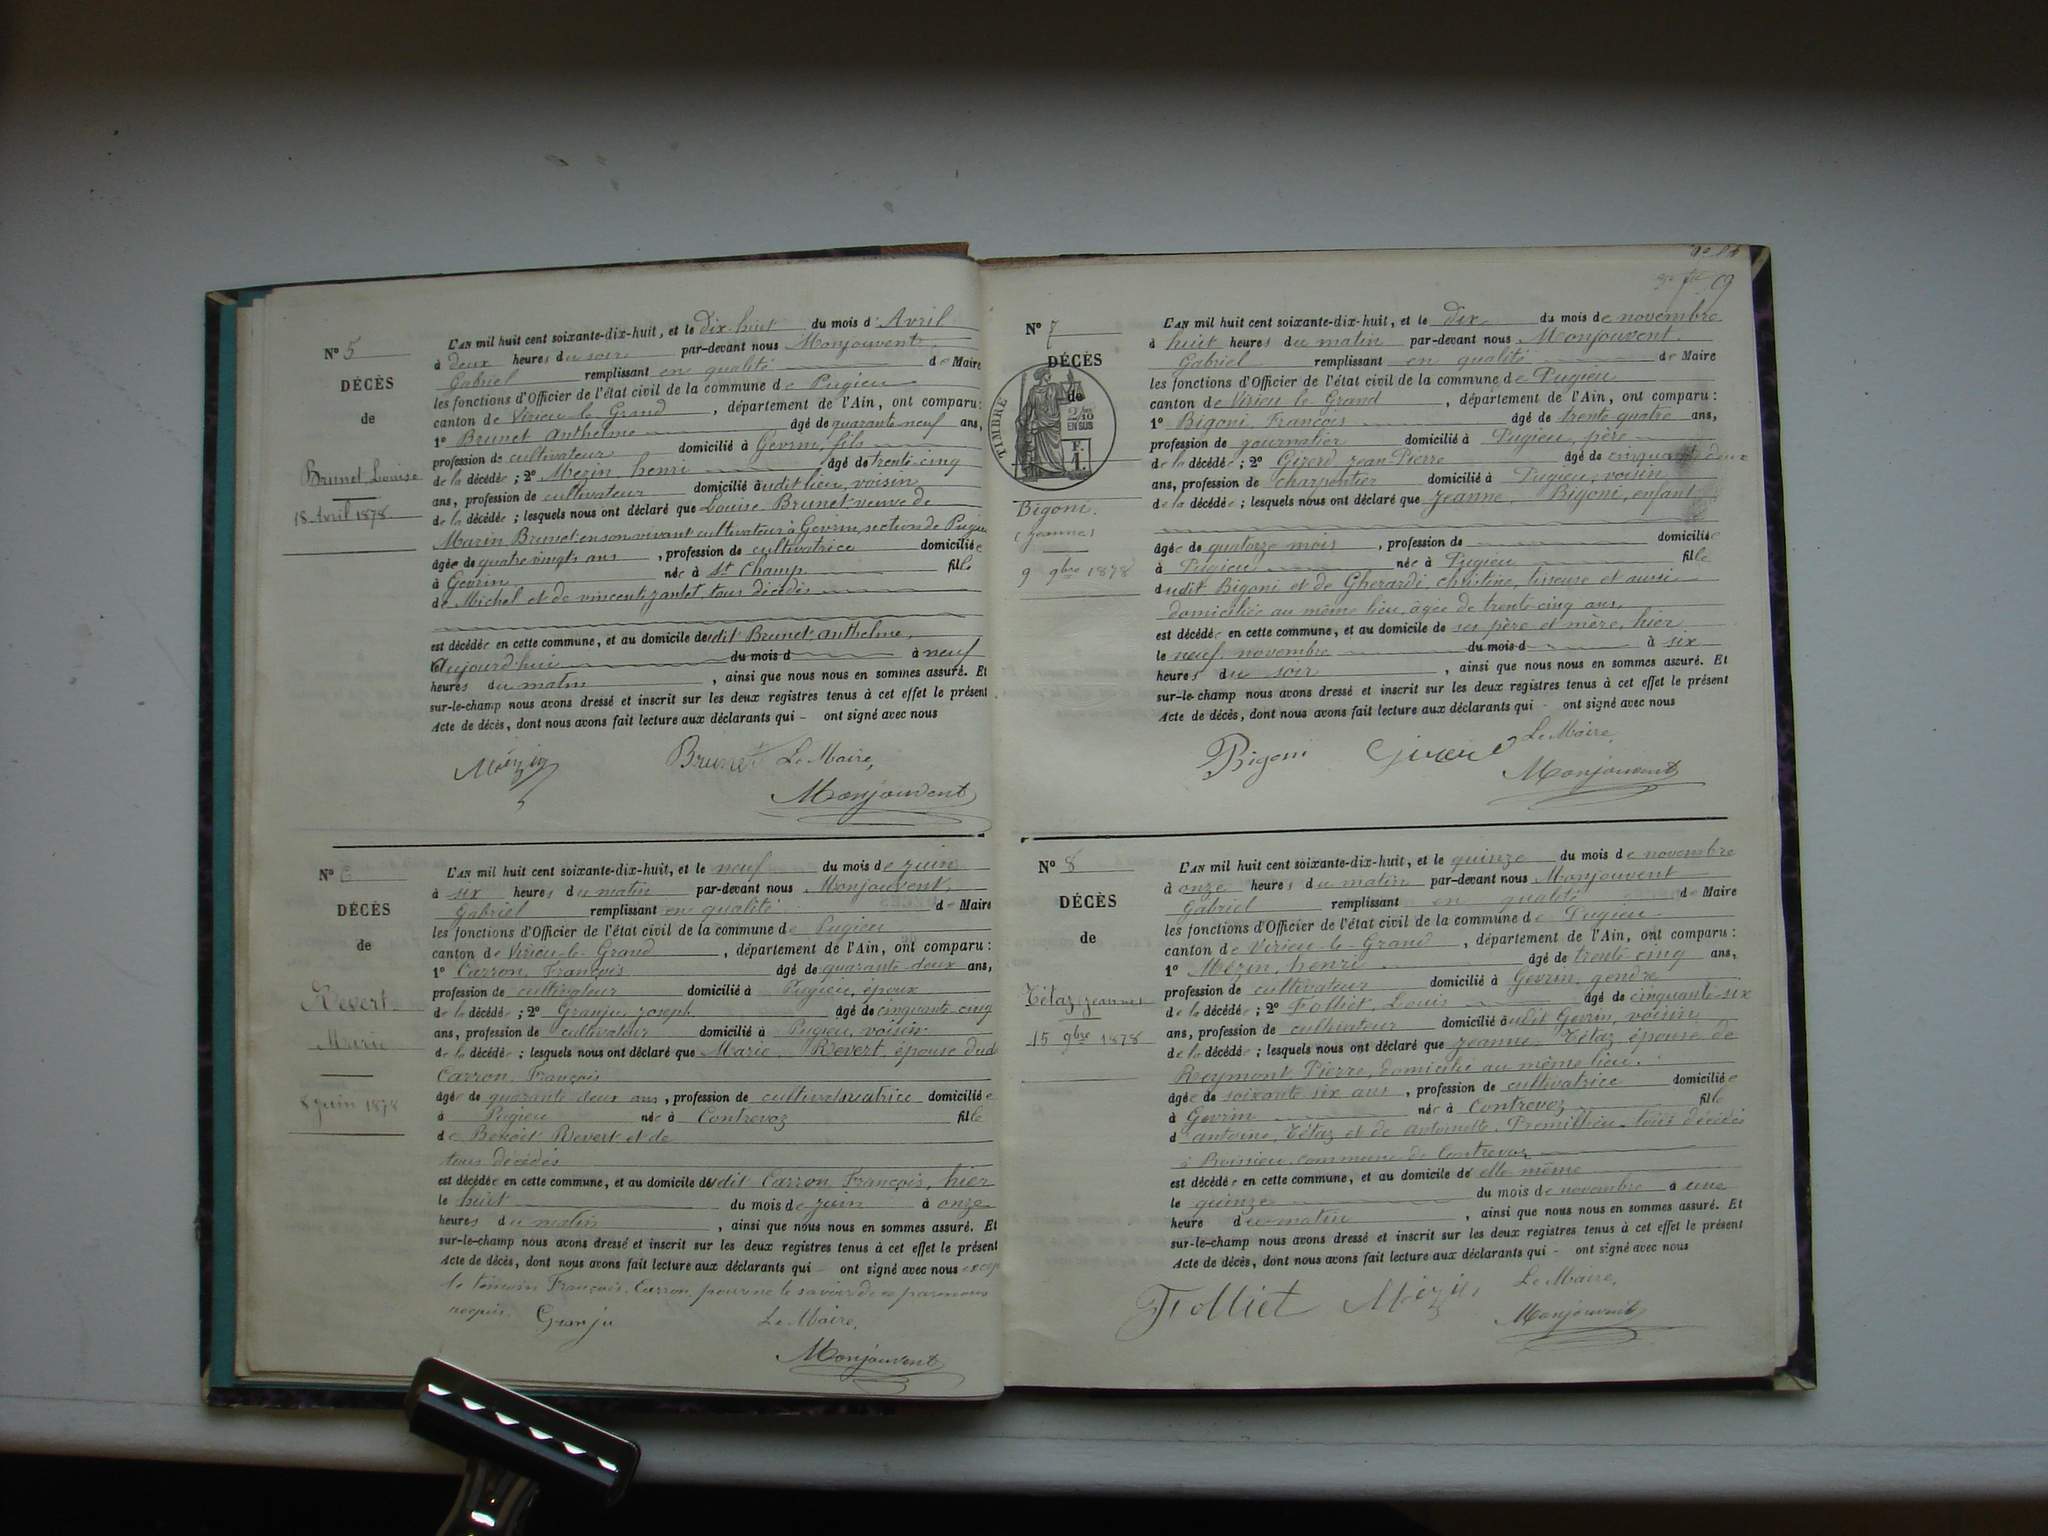 N° 5
DÉCÈS
de
Brunet Louise
18 Avril 1878
L'AN mil huit cent soixante-dix-huit, et le Dix-huit du mois d'Avril
à deux heures du soir par-devant nous Monjouvent
Gabriel remplissant en qualité de Maire
les fonctions d'Officier de l'état civil de la commune de Pugieu
canton de Virieu-le-Grand, département de l'Ain, ont comparu :
1° Brunet Anthelme âgé de quarante-neuf ans,
profession de cultivateur domicilié à Gevrin, fils
de la décédée ; 2° Mezin, henri âgé de trente-cinq
ans, profession de cultivateur domicilié audit lieu, voisin
de la décédée ; lesquels nous ont déclaré que Louise Brunet veuve de
Marin Brunet en son vivant cultivateur à Gevrin, section de Pugieu
âgée de quatre vingts ans, profession de cultivatrice domiciliée
à Gevrin née à St Champ fille
de Michel et de vincente zantet, tous décédés
est décédée en cette commune, et au domicile dudit Brunet anthelme,
Aujourd'hui du mois d à neuf
heures du matin, ainsi que nous nous en sommes assuré. Et
sur-le-champ nous avons dressé et inscrit sur les deux registres tenus à cet effet le présent
Acte de décès, dont nous avons fait lecture aux déclarants qui - ont signé avec nous
Mézin Brunet Le Maire,
Monjouvent
N° 6
DÉCÈS
de
Revert
Marie
8 juin 1878
L'AN mil huit cent soixante-dix-huit, et le neuf du mois de juin
à six heures du matin par-devant nous Monjouvent,
Gabriel remplissant en qualité de Maire
les fonctions d'Officier de l'état civil de la commune de Pugieu
canton de Virieu-le-Grand, département de l'Ain, ont comparu :
1° Carron, François âgé de quarante-deux ans,
profession de cultivateur domicilié à Pugieu, époux
de la décédée ; 2° Granju Joseph âgé de cinquante-cinq
ans, profession de cultivateur domicilié à Pugieu, voisin
de la décédée ; lesquels nous ont déclaré que Marie Revert, épouse dud
Carron, François
âgée de quarante deux ans, profession de domiciliée
à Pugieu née à Contrevoz fille
de Benoit Revert et de
tous décédés
est décédée en cette commune, et au domicile dudit Carron, François, hier
le huit du mois de juin à onze
heures du matin, ainsi que nous nous en sommes assuré. Et
sur-le-champ nous avons dressé et inscrit sur les deux registres tenus à cet effet le présent
Acte de décès, dont nous avons fait lecture aux déclarants qui ont signé avec nous
le témoin François Carron, pour ne le savoir de ce par nous
requis. Granju Le Maire,
Monjouvent
9
N° 7
DÉCÈS
de
TIMBRE
2/10
EN SUS
F.
1.
Bigoni
(Jeanne)
9 9bre 1878
L'AN mil huit cent soixante-dix-huit, et le dix du mois de novembre
à huit heures du matin par-devant nous Monjouvent
Gabriel remplissant en qualité de Maire
les fonctions d'Officier de l'état civil de la commune de Pugieu
canton de Virieu le Grand, département de l'Ain, ont comparu :
1° Bigoni, François âgé de trente-quatre ans,
profession de journalier domicilié à Pugieu, père
de la décédée ; 2° Girerd, Jean-Pierre âgé de cinquante deux
ans, profession de charpentier domicilié à Pugieu, voisin
de la décédée ; lesquels nous ont déclaré que Jeanne Bigoni, enfant
âgée de quatorze mois, profession de domiciliée
à Pugieu née à Pugieu fille
dudit Bigoni et de Gherardi, christine, tisseuse et aussi
domiciliée au même lieu, âgée de trente-cinq ans,
est décédée en cette commune, et au domicile de ses père et mère, hier
le neuf novembre du mois d à six
heures du soir, ainsi que nous nous en sommes assuré. Et
sur-le-champ nous avons dressé et inscrit sur les deux registres tenus à cet effet le présent
Acte de décès, dont nous avons fait lecture aux déclarants qui - ont signé avec nous
Bigoni Girerd Le Maire,
Monjouvent
N° 8
DÉCÈS
de
Tétaz Jeanne
15 9bre 1878
L'AN mil huit cent soixante-dix-huit, et le quinze du mois de novembre
à onze heures du matin par-devant nous Monjouvent
Gabriel remplissant en qualité de Maire
les fonctions d'Officier de l'état civil de la commune de Pugieu
canton de Virieu-le-Grand, département de l'Ain, ont comparu :
1° Mezin, henri âgé de trente cinq ans,
profession de cultivateur domicilié à Gevrin, gendre
de la décédée ; 2° Folliet, Louis âgé de cinquante-six
ans, profession de cultivateur domicilié audit Gevrin, voisin
de la décédée ; lesquels nous ont déclaré que Jeanne Tétaz épouse de
Reymont Pierre, domicilié au même lieu,
âgée de soixante six ans, profession de cultivatrice domiciliée
à Gevrin née à Contrevoz fille
d'antoine, Tétaz et de Antoinette Premillieu tous décédés
à Boissieu, commune de Contrevoz
est décédée en cette commune, et au domicile de elle même
le quinze du mois de novembre à une
heure du matin, ainsi que nous nous en sommes assuré. Et
sur-le-champ nous avons dressé et inscrit sur les deux registres tenus à cet effet le présent
Acte de décès, dont nous avons fait lecture aux déclarants qui - ont signé avec nous
Folliet Mézin Le Maire,
Monjouvent